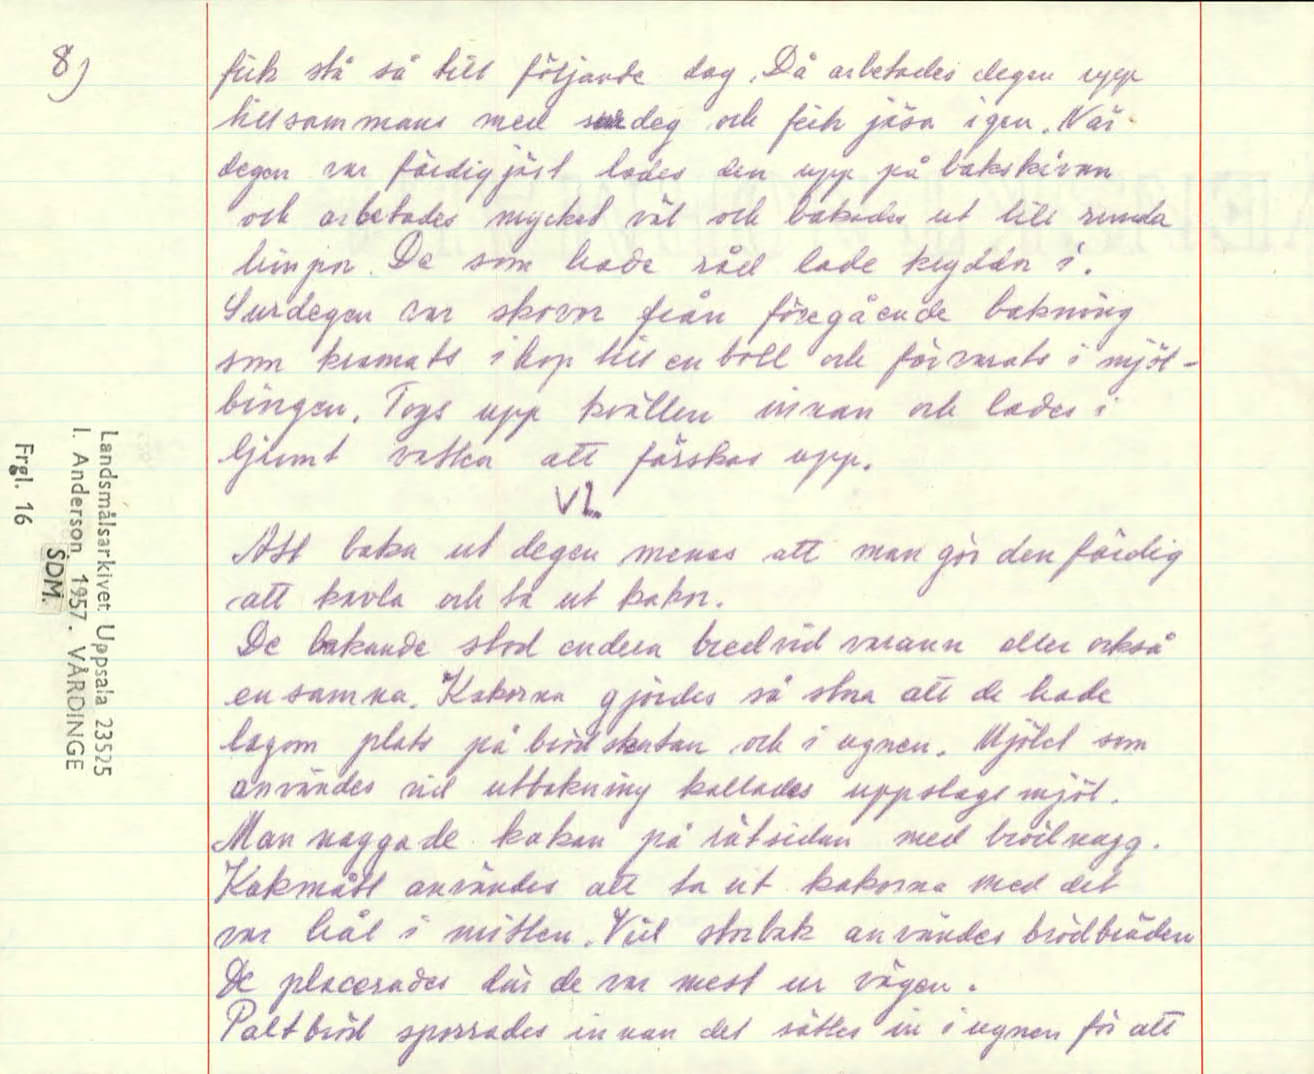 8)
fick stå så till följande dag. Då arbetades degen upp
tillsammans med surdeg och fick jäsa igen. När
degen var färdigjäst lades den upp på bakskivan
och arbetades mycket väl och bakades ut till runda
limpor. De som hade råd lade kryddor i.
Surdegen var skovor från föregående bakning
som kramats ihop till en boll och förvarats i mjöl-
bingen. Togs upp kvällen innan och lades i
ljumt vatten att färskas upp.
VI
Att baka ut degen menas att man gör den färdig
att kavla och ta ut kakor.
De bakande stod endera bredvid varann eller också
ensamma. Kakorna gjordes så stora att de hade
lagom plats på brödskutan och i ugnen. Mjölet som
användes vid utbakning kallades uppslagsmjöl.
Man naggade kakan på rätsidan med brödnagg.
Kakmått användes att ta ut kakorna med det
var hål i mitten. Vid storbak användes brödbräden
De placerades där de var mest ur vägen.
Paltbröd sporrades innan det sattes in i ugnen för att
Landsmålsarkivet Uppsala 23525
I. Anderson 1957. VÅRDINGE
SDM.
Frgl. 16